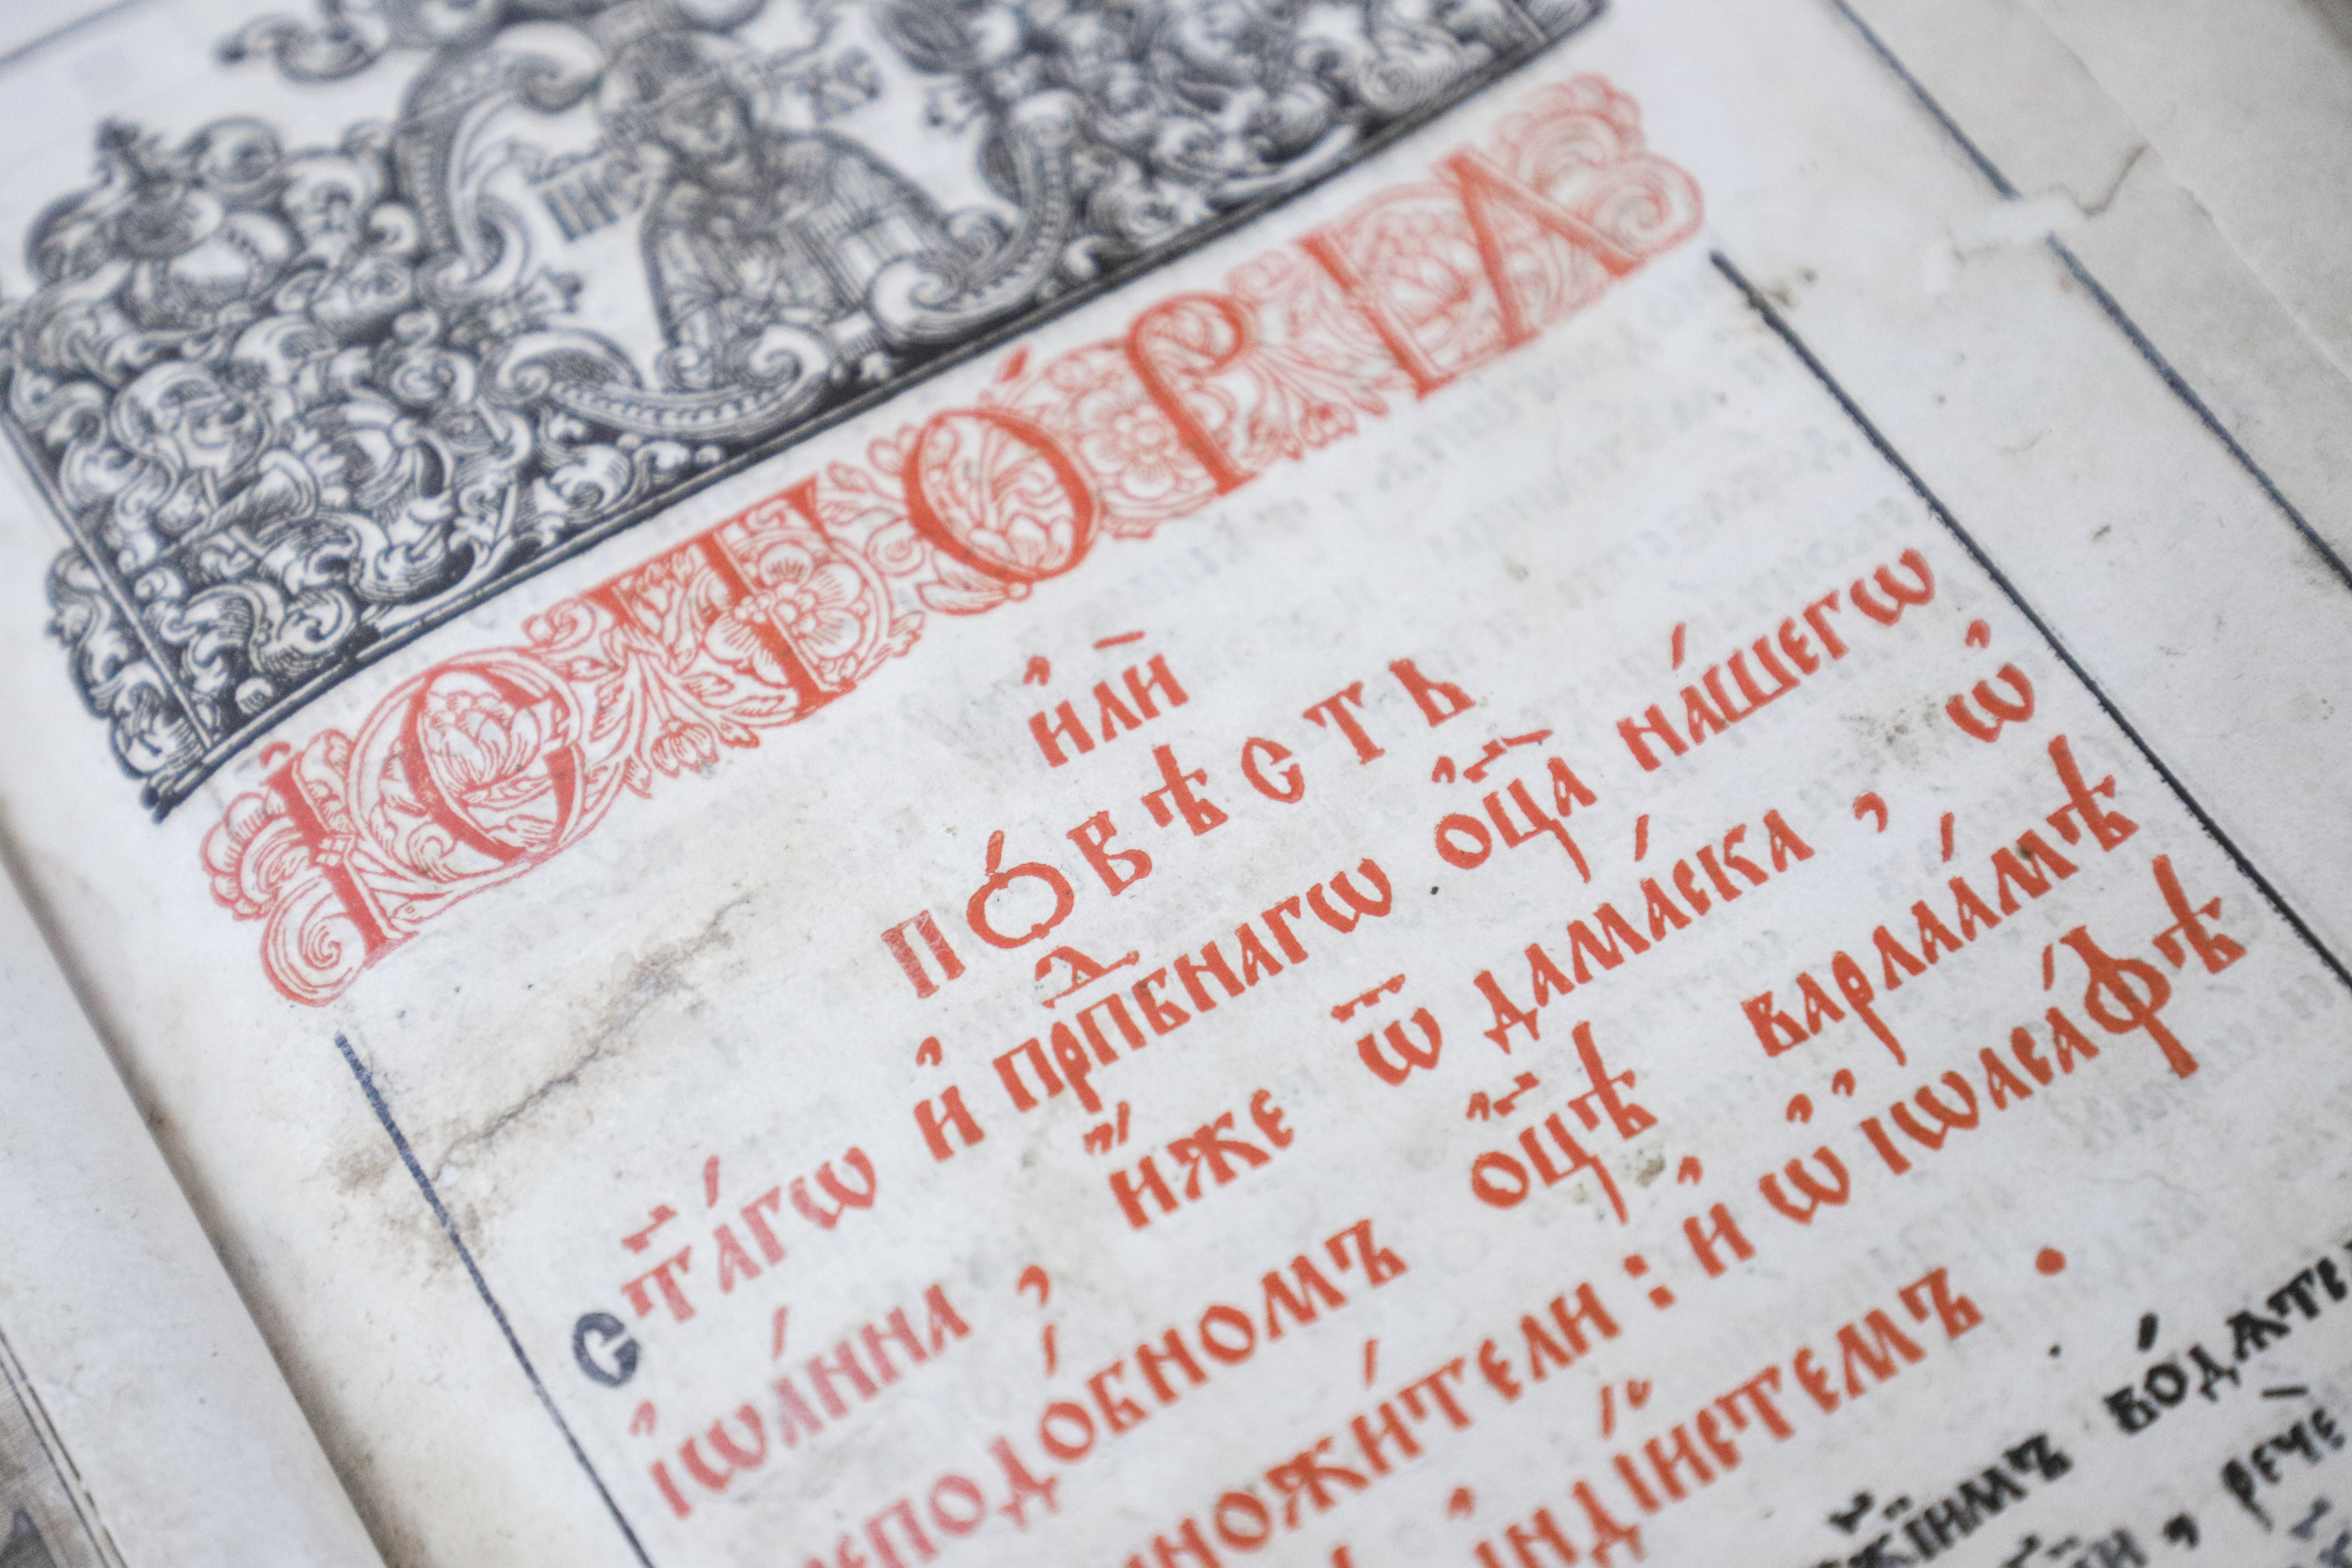 І҆СТО́РІА
И҆лѝ
ПО́ВѢСТЬ
ст҃а́гѡ и҆ прпⷣбнагѡ ѻ҆ц҃а на́шегѡ
і҆ѡа́нна, и҆́же ѿ дама́ска, ѡ҆
преподо́бномъ ѻ҆ц҃ѣ варлаа́мѣ
пѹстыножи́тели: и҆ ѡ҆ і҆ѡаса́фѣ
і҆нді́йстемъ.
бо́жіимъ во́дѧтсѧ
, рече